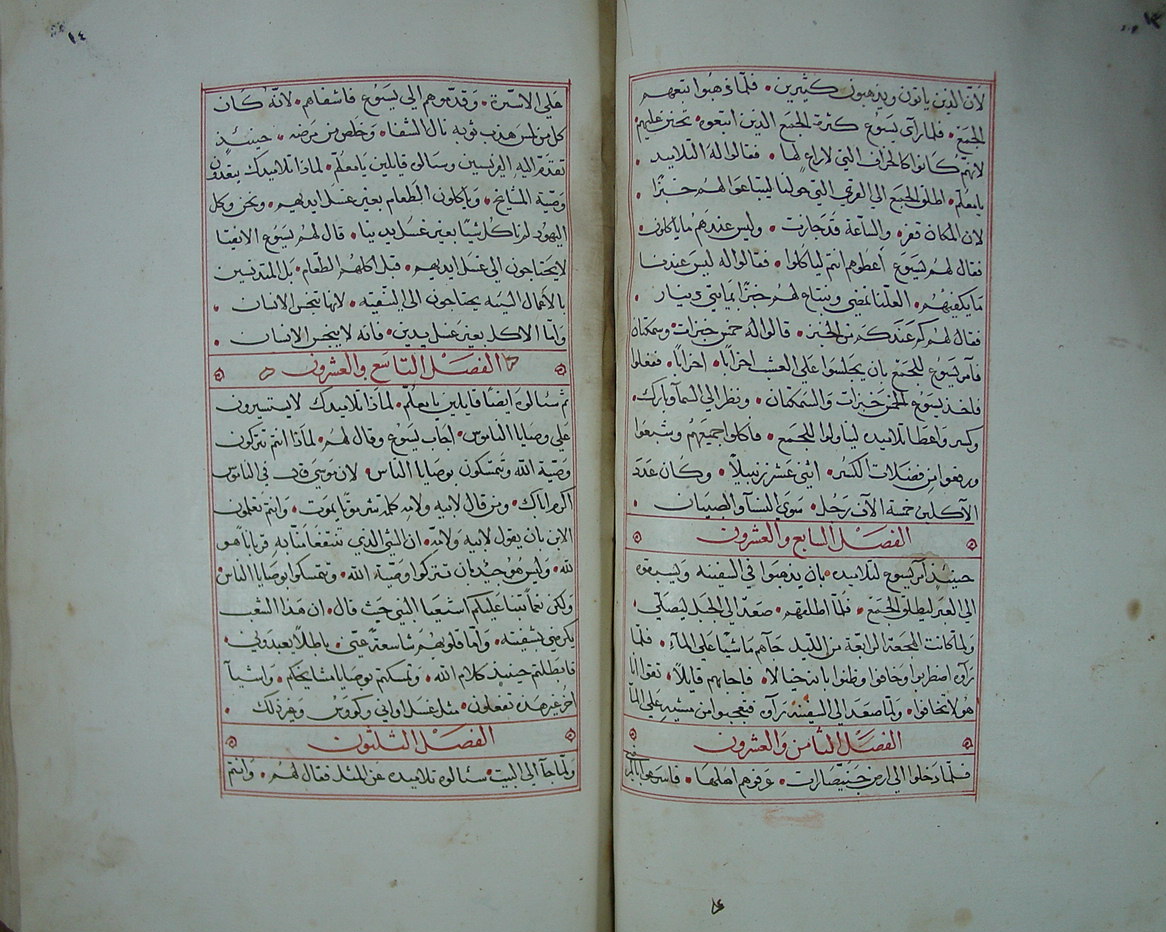 ١٣
لانّ الذين ياتون ويذهبون كثيرين۰ فلمّا ذهبوا تبعهم
الجمع۰ فلما رآى يسوع كثرة الجمع الذين اتبعوه تحنن عليهم۰
لانهم كانوا كالخراف التي لا راع لها۰ فقالوا له التلاميد
يا معلم۰ اطلق الجمع الي القري التي حولنا ليبتاعوا لهم خبزًا۰
لان المكان قفر۰ والساعة قد جازت۰ وليس عندهم ما ياكلون
فقال لهم يسوع أعطوهم انتم لياكلوا۰ فقالوا له ليس عندنا
ما يكفيهم۰ العلّنا نمضي ونبتاع لهم خبزًا بمايتي دينار۰
فقال لهم كم عندكم من الخبز۰ قالوا له خمس خبزات وسمكتان
فآمر يسوع للجمع بان يجلسوا علي العشب احزابًا۰ احزابًا۰ ففعلوا
فاخد يسوع الخمس خبزات والسمكتان۰ ونظر الي السمآ وبارك۰
وكسر واعطا تلاميده ليناولوا للجمع۰ فاكلوا جميعهم وشبعوا
ورفعوا من فضلات الكسر۰ اثني عشر زنبيلاً۰ وكان عدد
الآكلين خمسة الآف رجل۰ سوي النسآ والصبيان۰
الفصل السابع والعشرون
حينيذ آمر يسوع لتلاميده۰ بان يذهبوا في السفينه ويسبقوه
الي العبر ليطلق الجمع۰ فلمّا اطلقهم۰ صعد الي الجبل ليصلّي۰
ولما كانت الهجعة الرابعة من الليل جآهم ماشيًا علي المآء۰ فلمّا
رآوه اضطربوا وخافوا وظنوا بانه خيالا۰ فاجابهم قايلاً۰ ثقوا انا
هو لا تخافوا۰ ولما صعد الي السفينة رآوه فتعجبوا من مشيه علي المآ
الفصل الثامن والعشرون
فلمّا دخلوا الي ارض جنيصارات۰ عرفوهم اهلها۰ فاسرعوا بالمرضي
١٤
علي الاسّرة۰ وقدّموهم الي يسوع فاشفاهم۰ لانّه كان
كل من لمس هدب ثوبه نال الشفا۰ وخلص من مرضه۰ حينيئذ
تقدّم اليه الفريسين وسالوه قايلين يا معلّم۰ لماذا تلاميدك يتعدّون
وصيّة المشايخ۰ وياكلون الطعام بغير غسل ايديهم۰ ونحن وكل
اليهود لم ناكل شيًا بغير غسل يدينا۰ قال لهم يسوع الانقيا
لا يحتاجون الي غسل ايديهم۰ قبل اكلهم الطعام۰ بل المتدنسين
بالاعمال السيّه يحتاجون الي التنقيه۰ لانها تنجس الانسان۰
وامّا الاكل بغير غسل يدين۰ فانه لا ينجس الانسان۰
الفصل التاسع والعشرون
ثم سئالوه ايضًا قايلين يا معلّم۰ لماذا تلاميدك لا يستسيرون
علي وصايا الناموس۰ اجاب يسوع وقال لهم۰ لماذا انتم تتركون
وصيّة الله وتتمسّكون بوصايا الناس۰ لان موسي قال في الناموس
اكرم اباك۰ ومن قال لابيه ولامه كلمة شر موتًا يموت۰ وانتم تعلمون
الابن بان يقول لابيه ولامّه۰ ان الشي الدي تنتفعا منّا به قربانًا هو
لله۰ وليس هو جيّد ان تتركوا وصيّة الله۰ وتتمسكوا بوصايا الناس۰
ولكن نعمًا تنبّا عليكم اشعيا النبي حيث قال۰ ان هذا الشعب
يكرمني بشفتيه۰ وامّا قلوبهم شاسعةً عنّي۰ باطلاً يعبدوني۰
فابطلتم حينيذ كلام الله۰ وتمسكتم بوصايا مشايخكم۰ واشيآ
اخر غير هده تفعلون۰ مثل غسل اواني وكووس وغير دلك۰
الفصل الثلثون
ولمّا جآ الي البيت۰ سئالوه تلاميده عن المثل فقال لهم۰ وانتم